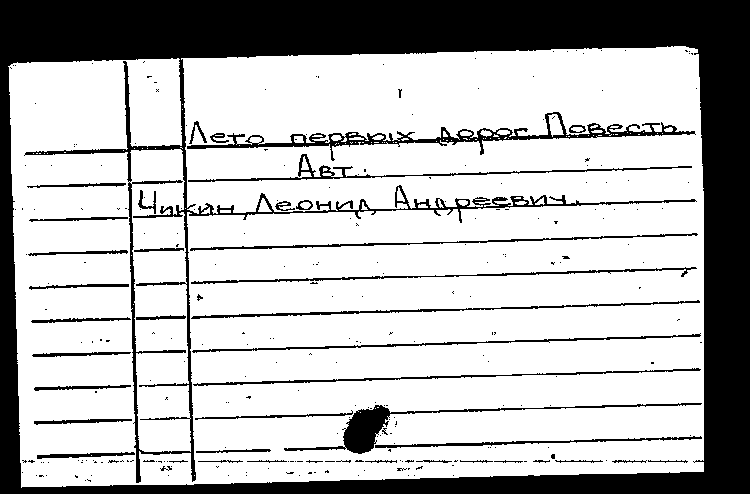 Лето первых дорог Повесть
Авт.:
Чикин, Леонид Андреевич.